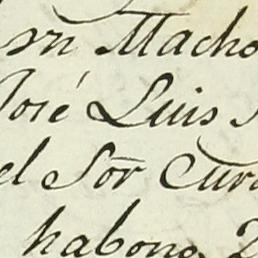 en Macho
José Luis
el Sōr Cura
habono